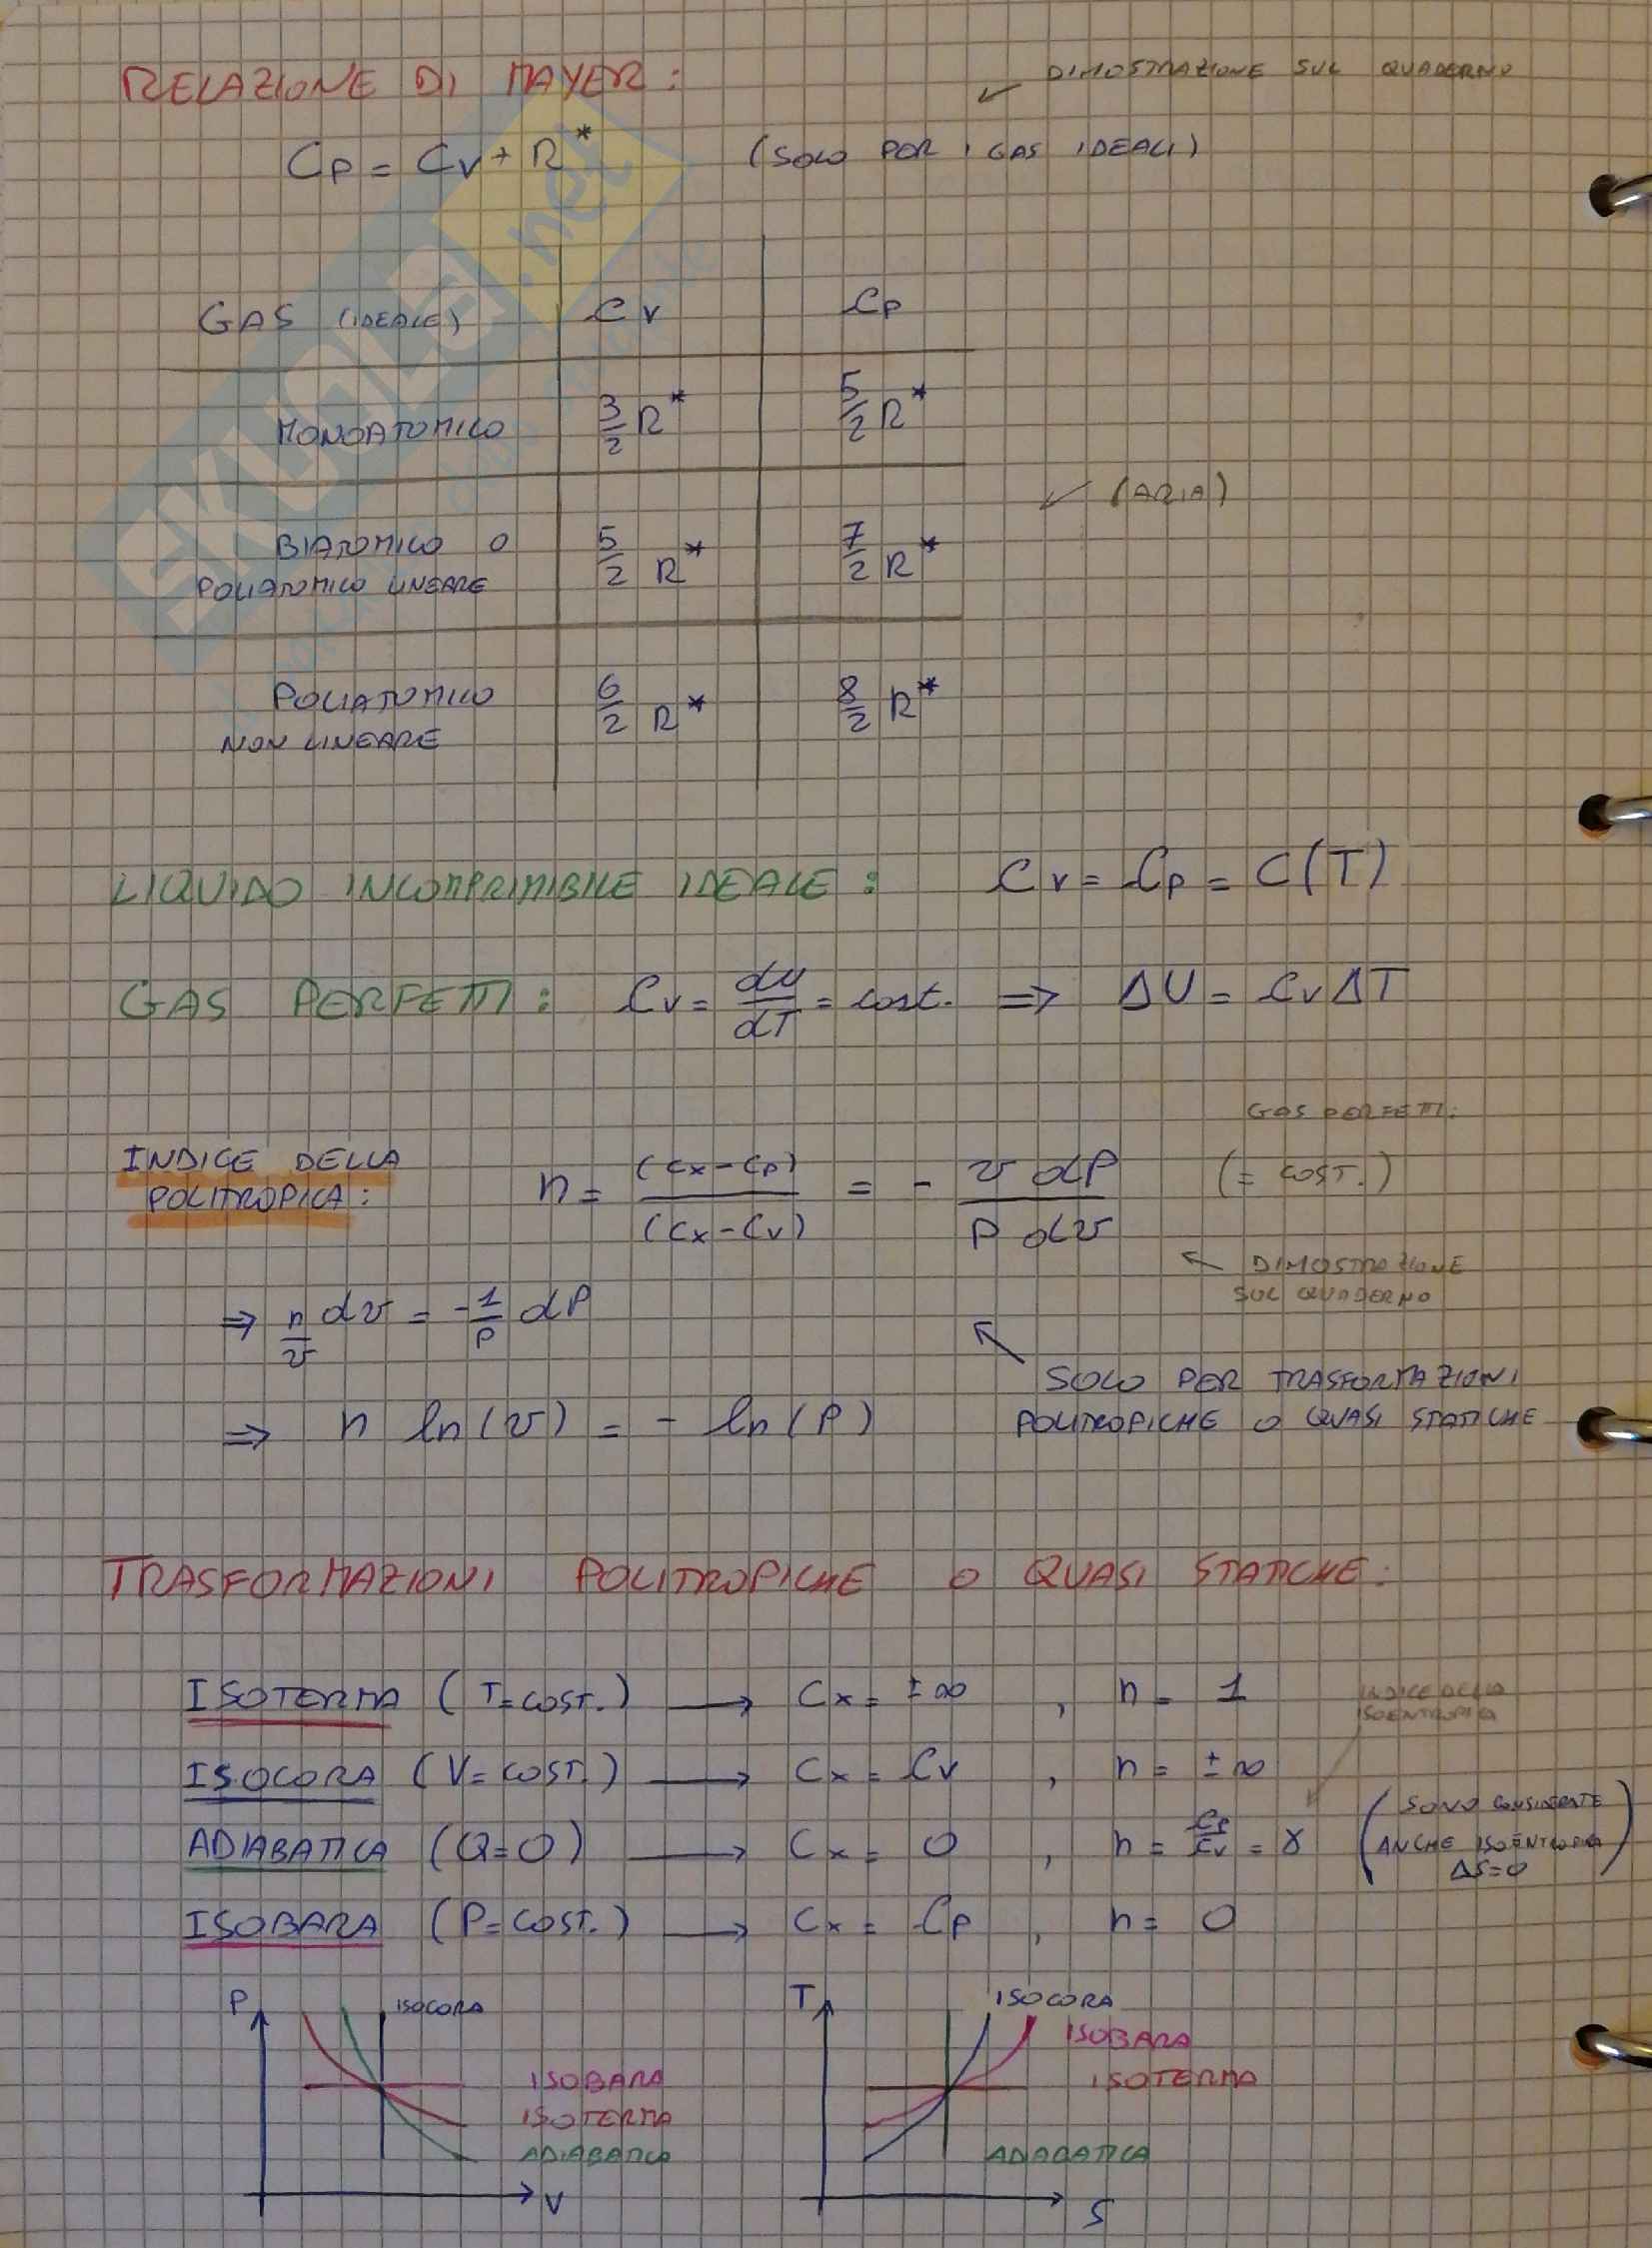 RELAZIONE DI MAYER:
DIMOSTRAZIONE SUL QUADERNO
Cp = Cv + R* (SOLO PER I GAS IDEALI)
GAS (IDEALE) Cv Cp
MONOATOMICO 3/2 R* 5/2 R*
(ARIA)
BIATOMICO O 5/2 R* 7/2 R*
POLIATOMICO LINEARE
POLIATOMICO 6/2 R* 8/2 R*
NON LINEARE
LIQUIDO INCOMPRIMIBILE IDEALE: Cv = Cp = C(T)
GAS PERFETTI: Cv = du/dT = cost. ⇒ ΔU = Cv ΔT
GAS PERFETTI:
INDICE DELLA
POLITROPICA: n = (Cx - Cp)/(Cx - Cv) = - v dP / P dv (= COST.)
DIMOSTRAZIONE
SUL QUADERNO
⇒ n/v dv = - 1/P dP
SOLO PER TRASFORMAZIONI
POLITROPICHE O QUASI STATICHE
⇒ n ln(v) = - ln(P)
TRASFORMAZIONI POLITROPICHE O QUASI STATICHE:
ISOTERMA (T=COST.) → Cx = ±∞ , n = 1
INDICE DELLA
ISOENTROPICA
ISOCORA (V=COST.) → Cx = Cv , n = ±∞
ADIABATICA (Q=0) → Cx = 0 , n = Cp/Cv = γ
(SONO CONSIDERATE
ANCHE ISOENTROPICA
ΔS=0)
ISOBARA (P=COST.) → Cx = Cp , n = 0
P
ISOCORA
ISOBARA
ISOTERMA
ADIABATICA
V
T
ISOCORA
ISOBARA
ISOTERMA
ADABATICA
S
SKUOLA.net